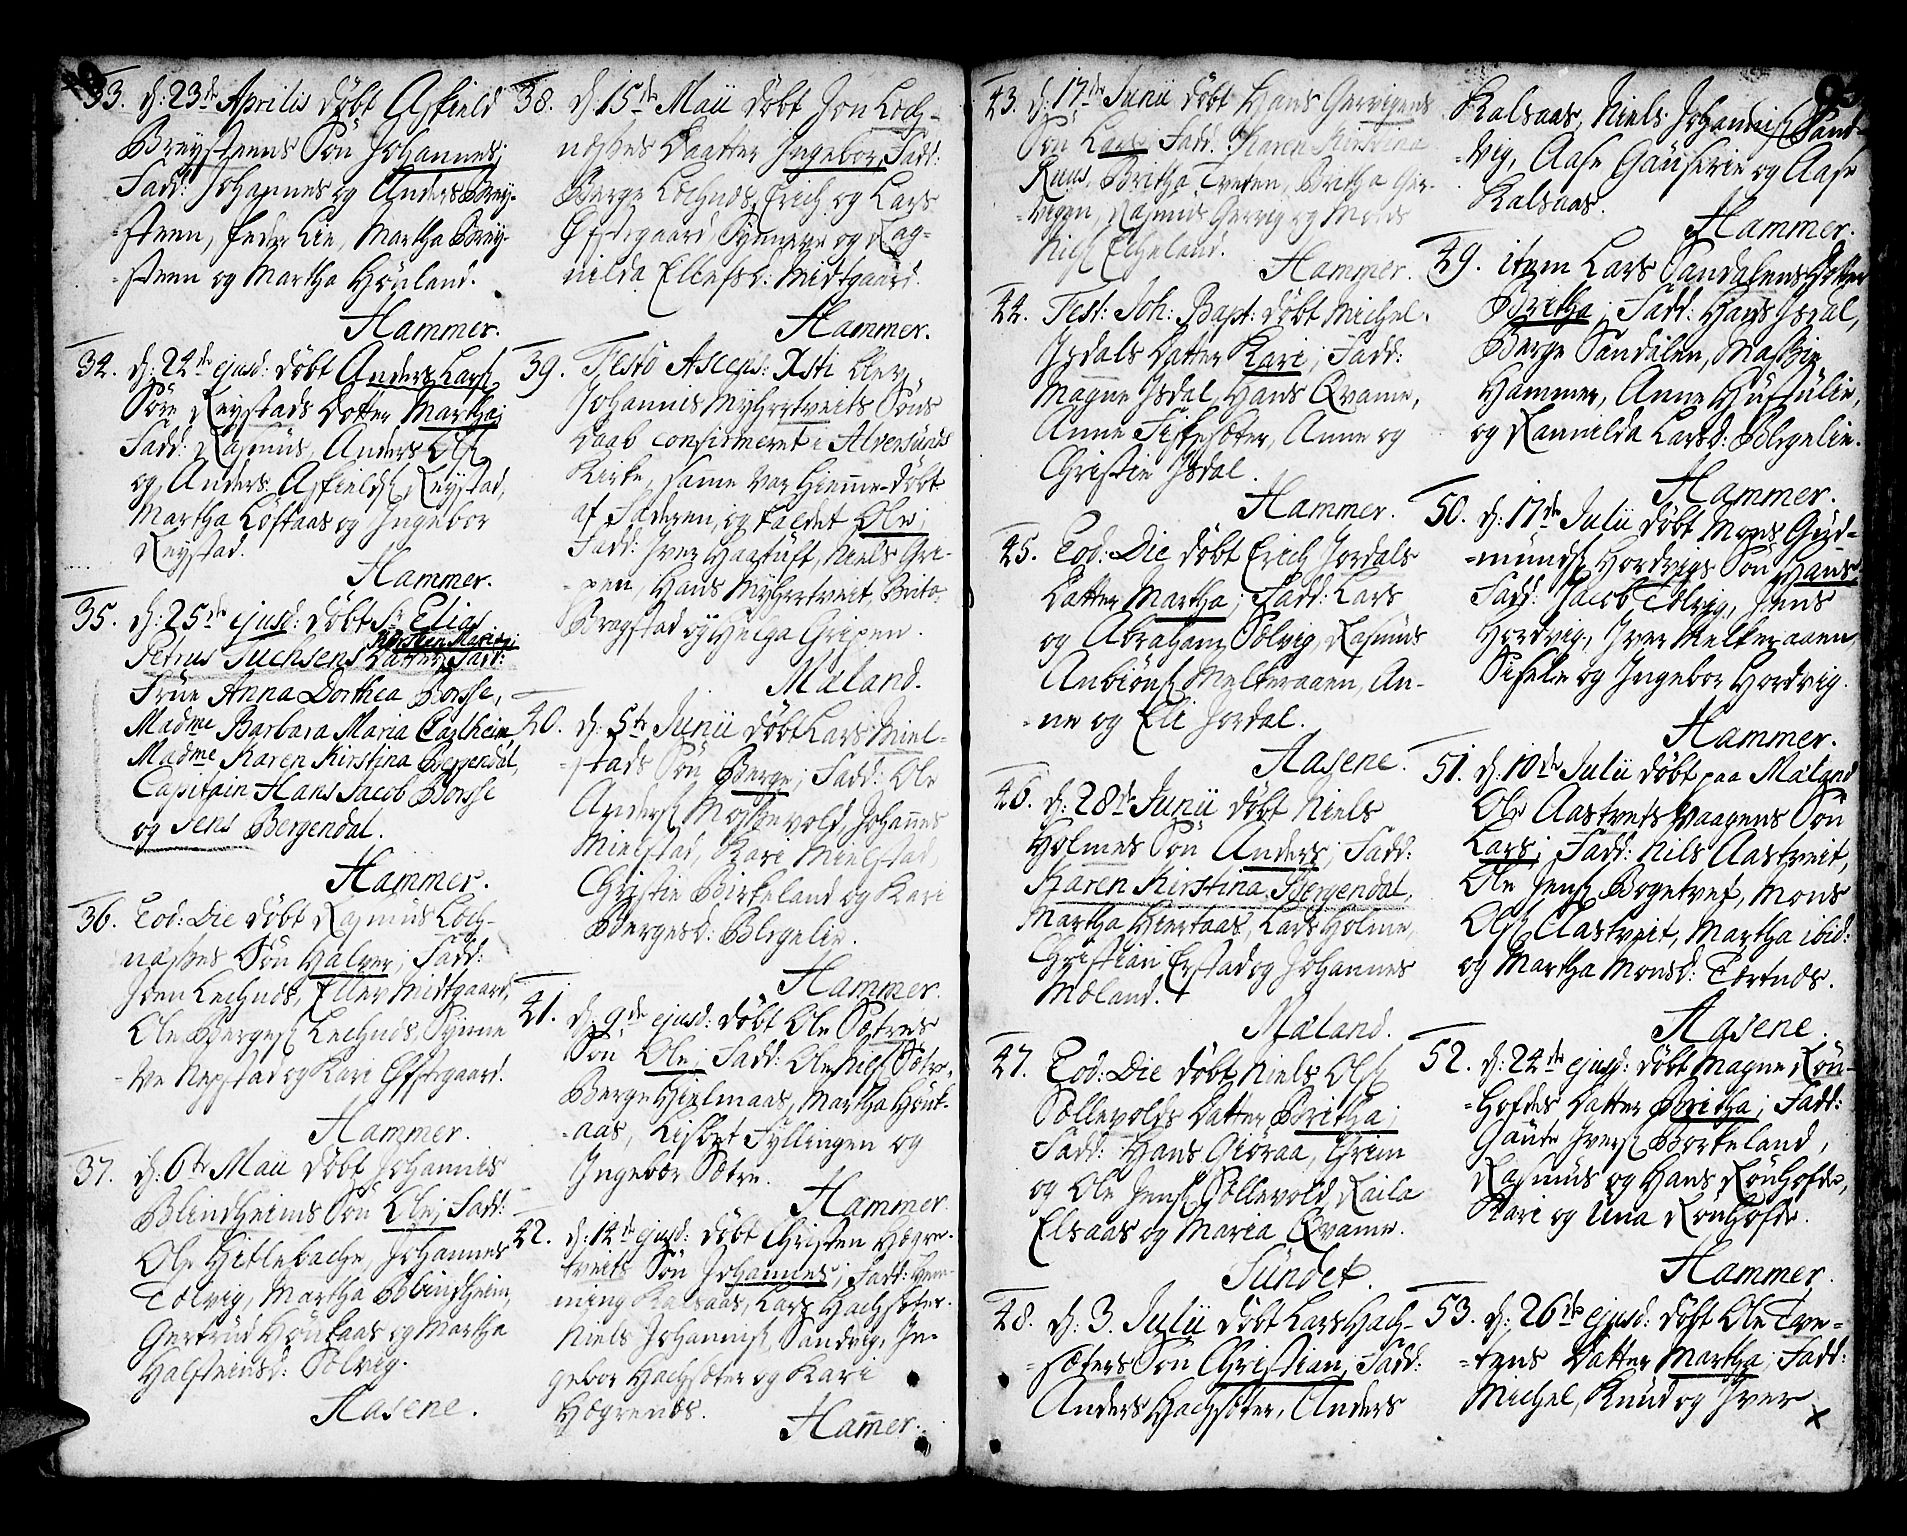 33. d: 23de Aprilis döbt Asfield
Breysteens Sön Johannes;
Fadd: Johannes og Anders Brey-
-steen, Peder Lie, Martha Brey-
-steen og Martha Höyland.
Hammer.
34. d: 24de ejusd: döbt Anders Lars
Söre Reystads Dotter Martha;
Fadd: Rasmus, Anders Ols
og Anders Asfields Reystad,
Martha Löftaas og Ingebor
Reystad.
Hammer.
35. d: 25de ejusd: döbt Sr Elias
Petrus Tuchsens Datter Kirsten Maria; Fadd:
Frue Anna Dorthea Dorsse,
Madme Barbara Maria
Madme Karen Kirstina Bergendal,
Capitain Hans Jacob Dorsse
og Jens Bergendal.
Hammer.
36. Eod: Die döbt Rasmus Loch-
næsses Sön Halver; Fadd:
Joen Lechnæs, Eller Midtgaard,
Ole Berges Lechnæs, Synne
-ve Nepstad og Kari Øfstegaard.
Hammer.
37. d: 6te Maii döbt Johannes
Blindheims Sön Ole; Fadd:
Ole Hitlebache, Johannes
Tælvig, Martha Blindheim,
Gertrud Höykaas og Martha
Halfteinsd: Sölvig.
Aasene.
38. d: 15de Maii döbt Jon Loch-
næsses Daatter Ingebor; Fadd:
Berge Lochnæs, Erich og Lars
Øfstegaard, Synneve og Rag-
nilda Ellefsd: Midtgaard.
Hammer.
39. Festo Ascens: Xsti blev
Johannes Myhrtveits Söns
Daab confirmeret i Alversunds
Kirke, samme var hiemme-döbt
af Faderen, og kaldet Ole;
Fadd: Iver Haastüft, Niels Gri-
-pen, Hans Myhrtveit, Brita
Brogstad og Helga Gripen.
Mæland.
40. d: 5te Junii döbt Lars Miel-
-stads Sön Berge; Fadd: Ole
Anders Mossevold, Johannes
Mielstad, Kari Mielstad,
Christie Birkeland og Kari
Bergesd: Blegelie.
Hammer.
41. d: 9de ejusd: döbt Ole Sætres
Sön Ole; Fadd: Ole Niels Sætre,
Berge Hielmaas, Martha Höyk-
-aas, Lisbet Fyllingen og
Ingebor Sætre.
Hammer.
42. d: 14de ejusd: döbt Christen Hægre-
tveits Sön Johannes; Fadd: Hem-
ming Kalsaas, Lars Hachsæter,
Niels Johannes Sandvig, In-
gebor Hachsæter og Kari
Hægrenæs.
Hammer.
43. d: 17de Junii döbt Hans Gervigens
Sön Lars; Fadd: Karen Kirstina
Ruus, Britha Tveten, Britha Ger-
-vigen, Rasmus Gervig og Mons
Niels Elgeland.
Hammer.
44. Fest: Joh: Bapt: döbt Michel
Isdals Datter Kari; Fadd:
Magne Isdal, Hans Qvamme,
Anne Fissesæter, Anne og
Christie Isdal.
Hammer.
45. Eod: Die döbt Erich Jordals
Datter Martha; Fadd: Lars
og Abraham Sölvig, Rasmus
Anbiörns Melkeraaen, An-
-ne og Eli Jordal.
Aasene.
46. d: 28de Junii döbt Niels
Holmes Sön Anders; Fadd:
Karen Kirstina Bergendal,
Martha Hiertaas, Lars Holme,
Christian Erstad og Johannes
Mæland.
Mæland.
47. Eod: Die döbt Niels Ols
Sællevolds Datter Britha;
Fadd: Hans Giöraa, Grim
og Ole Jens Sællevold, Raila
Elsaas og Maria Qvamme.
Sundet.
48. d: 3. Julii döbt Lars Hach-
-sæters Sön Christian; Fadd:
Anders Hachsæter, Anders
Kalsaas, Niels Johannis Sand-
-vig, Aase Gäuserie og Aase
Kalsaas.
Hammer.
49. item Lars Sandalens Dotter
Britha; Fadd: Hans Isdal,
Berge Sandalen, Massie
Hammer, Anne Hustülie,
og Rannilda Larsd: Blegelie.
Hammer.
50. d: 17de Julii döbt Mons Gud-
-munds Hordvigs Sön Hans
Fadd: Jacob Tölvig, Jens
Hordvig, Iver Melkeraaen,
Sisele og Ingebor Hordvig.
Hammer.
51. d: 10de Julii döbt paa Mæland
Ole Aastvets Vaagens Sön
Lars; Fadd: Nils Aastveit,
Ole Jens Bogetvet, Mons
Ols Aastveit, Martha ibid:
og Martha Monsd: Tertnæs.
Aasene.
52. d: 24de ejusd: döbt Magne Rön-
-hofdes Datter Britha; Fadd:
Gaute Ivers Borkeland,
Rasmus og Hans Rönhofde,
Kari og Una Rönhofde.
Hammer.
53. d: 26de ejusd: döbt Ole Tve-
-tens Datter Martha; Fadd:
Michel, Knud og Iver